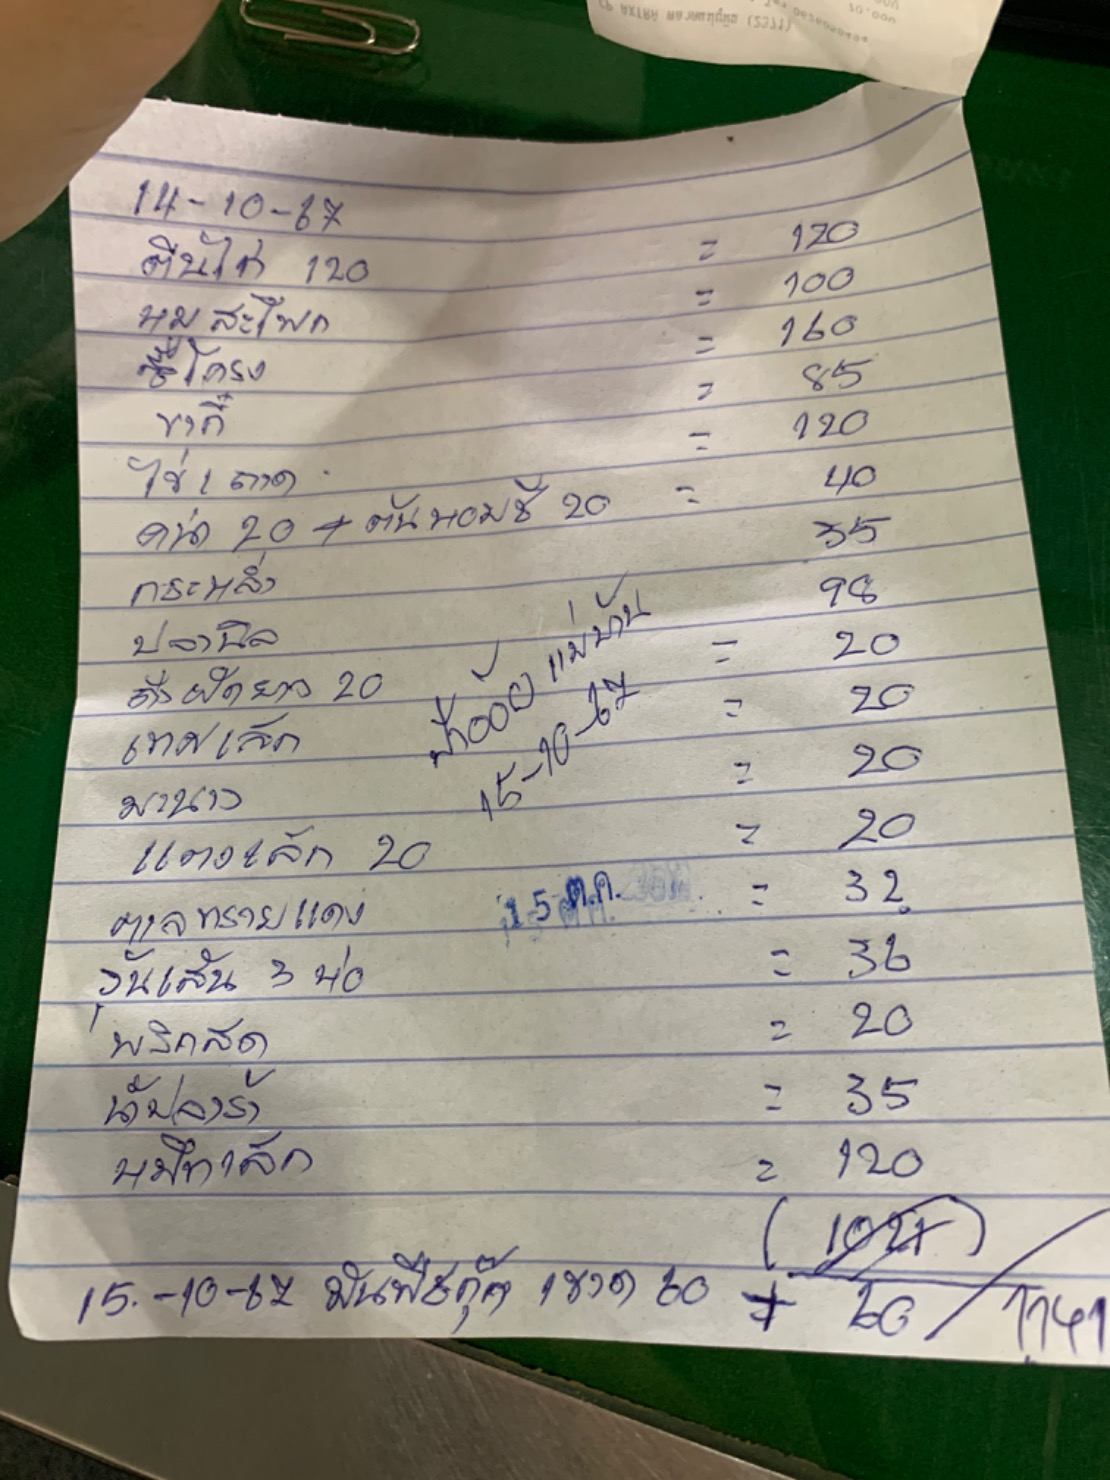 14-10-67
ตีนไก่ 120 = 120
หมูสะโพก = 100
ซี่โครง = 160
ขากิ๊ = 85
ไข่ 1 ถาด = 120
คะน้า 20 + ต้นหอมชี 20 = 40
กระหล่ำ 35
ปลานิล 98
ถั่วฝักยาว 20 = 20
เทศเล็ก = 20
มานาว = 20
แตงเล็ก 20 = 20
ตาลทรายแดง = 32
วุ้นเส้น 3 ห่อ = 36
พริกสด = 20
น้ำปลาร้า = 35
หมึกเล็ก = 120
แม่บ้าน
15-10-67
15 ต.ค.
15-10-67 มันฟีชกุ๊ก 1 ขวด 60 + 60 / 1141